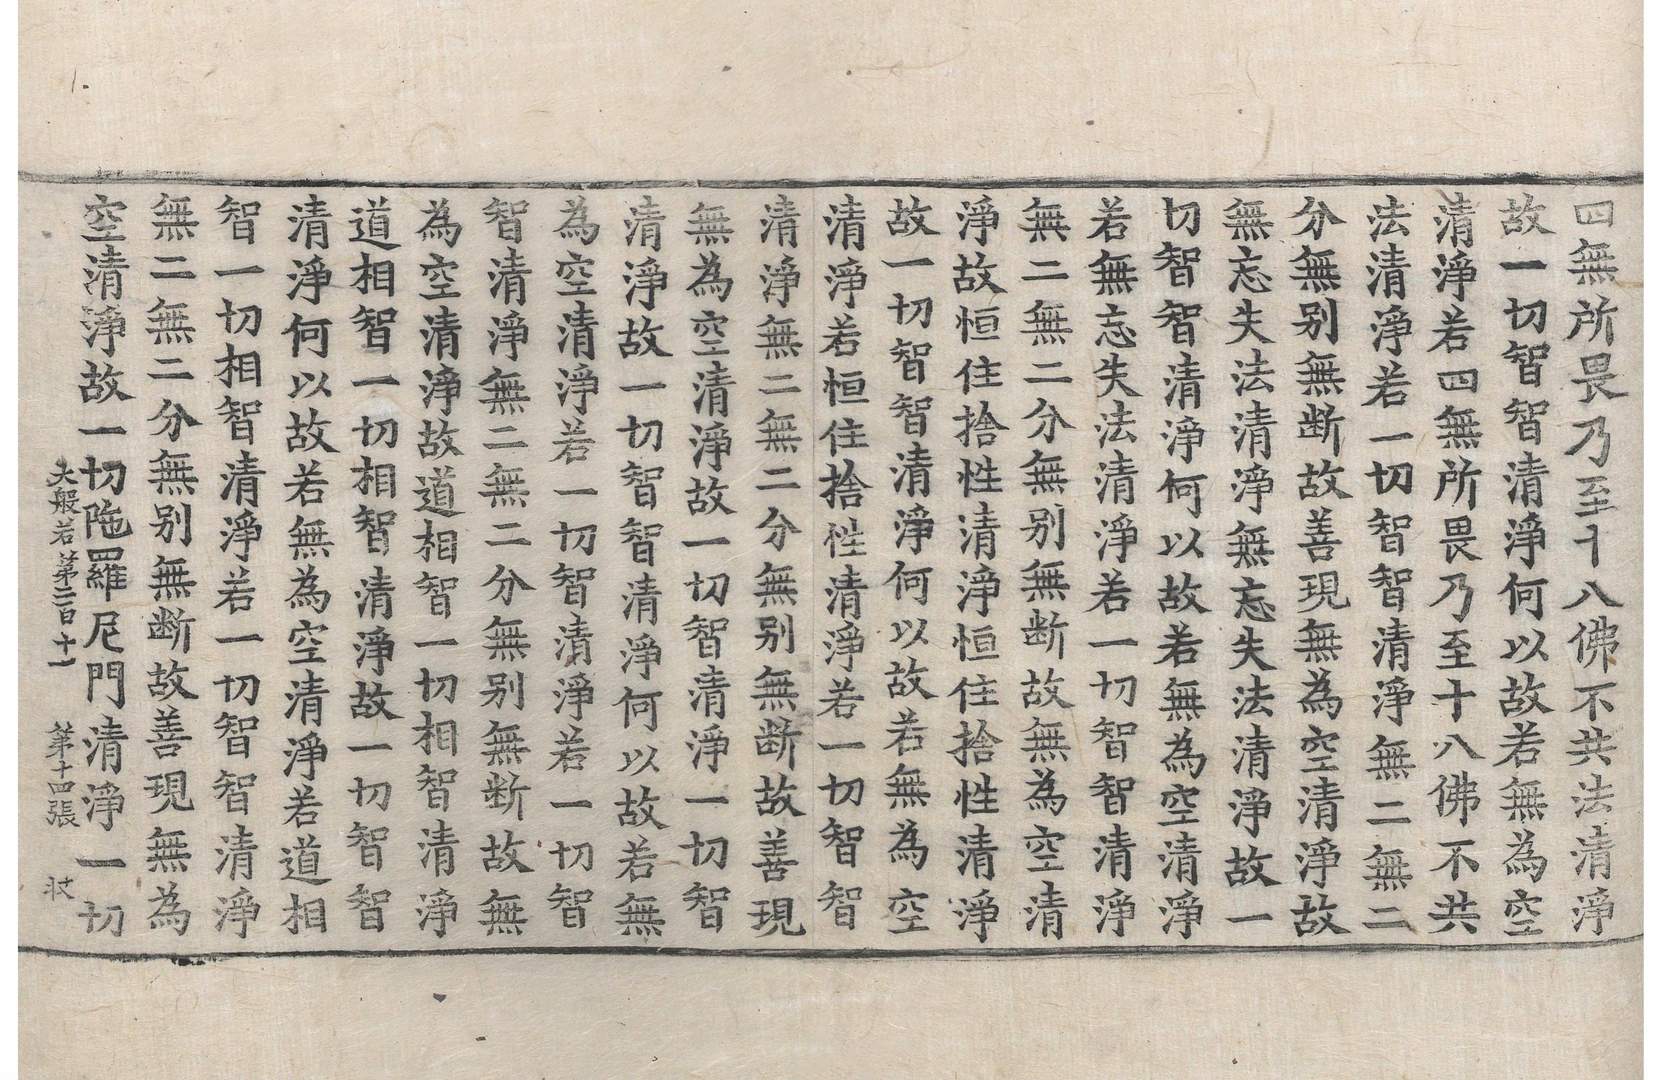 四無所畏乃至十八佛不共法清淨
故一切智智清淨何以故若無為空
清淨若四無所畏乃至十八佛不共
法清淨若一切智智清淨無二無二
分無別無断故善現無為空清淨故
無忘失法清淨無忘失法清淨故一
切智智清淨何以故若無為空清淨
若無忘失法清淨若一切智智清淨
無二無二分無別無断故無為空清
淨故恒住捨性清淨恒住捨性清淨
故一切智智清淨何以故若無為空
清淨若恒住捨性清淨若一切智智
清淨無二無二分無別無断故善現
無為空清淨故一切智清淨一切智
清淨故一切智智清淨何以故若無
為空清淨若一切智清淨若一切智
智清淨無二無二分無別無断故無
為空清淨故道相智一切相智清淨
道相智一切相智清淨故一切智智
清淨何以故若無為空清淨若道相
智一切相智清淨若一切智智清淨
無二無二分無別無断故善現無為
空清淨故一切陁羅尼門清淨一切
大般若第二百十一 第十四張